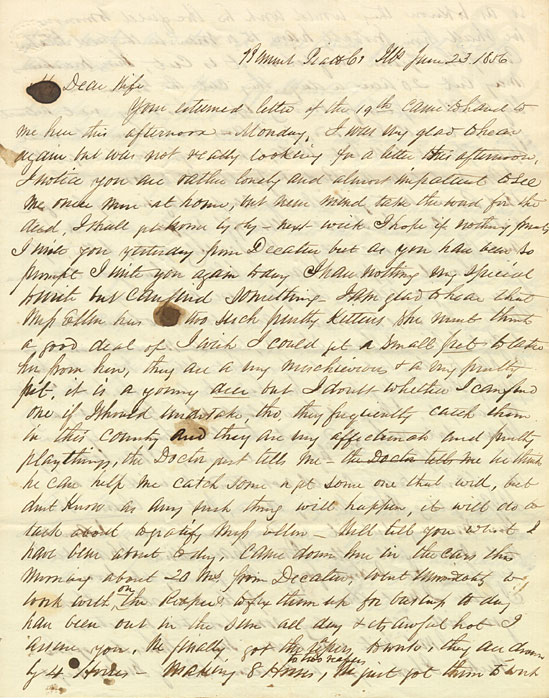 Bement Piatt Co Ills June 23. 1856
Dear Wife
Your esteemed letter of the 19th came to hand to
me here this afternoon – Monday, I was very glad to hear
again but was not really looking for a letter this afternoon,
I notice you are rather lonely and almost impatient to see
me once more at home, but never mind take the road for the
dead, I shall get home by by – next week I hope if nothing
I wrote you yesterday from Decatur but as you have been so
prompt I write you again today I have nothing very special
to write but can find something – I am glad to hear that
Miss Ellen has two such pretty kittens she must think
a good deal of I wish I could get a small pet to take
her from here, they are a very mischievous & a very pretty
pet. it is a young deer but I doubt whether I can find
one if I should undertake tho they frequently catch them
in this county and they are very affectionate and pretty
playthings, the Doctor just tells me – the Doctor tells me he thinks
he can help me catch some or get some one that will, but
dont know as any such thing will happen, it will do to
talk about to gratify Miss Ellen – I will tell you what I
have been about today, came down here in the cars this
morning about 20 Mls from Decatur, Went immediately to
work with on the Reapers to fix them up for to day
have been out in the sun all day & its awful hot I
assure you, We finally got the reapers to work, they are drawn
by 4 Horses – making 8 Horses, to two reapers We just got them to work